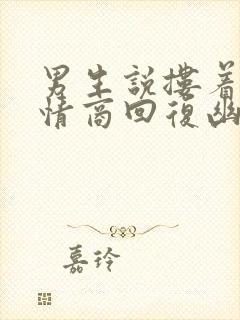 男生說摟着
情商回復幽
嘉玲